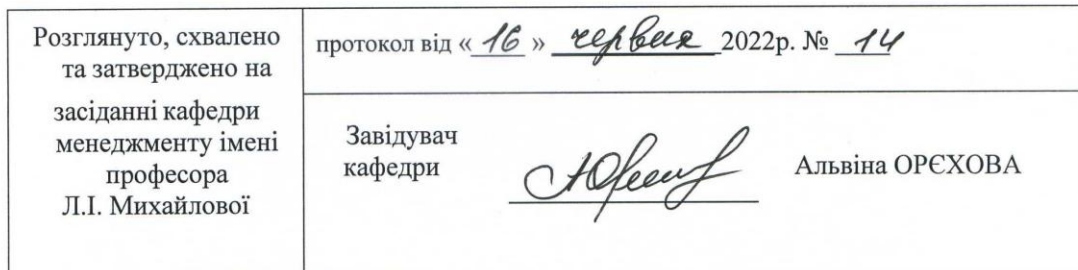 Розглянуто, схвалено
та затверджено на
засіданні кафедри
менеджменту імені
професора
Л.І. Михайлової
протокол від « 16 » червня 2022р. № 14
Завідувач
кафедри
Альвіна ОРЄХОВА